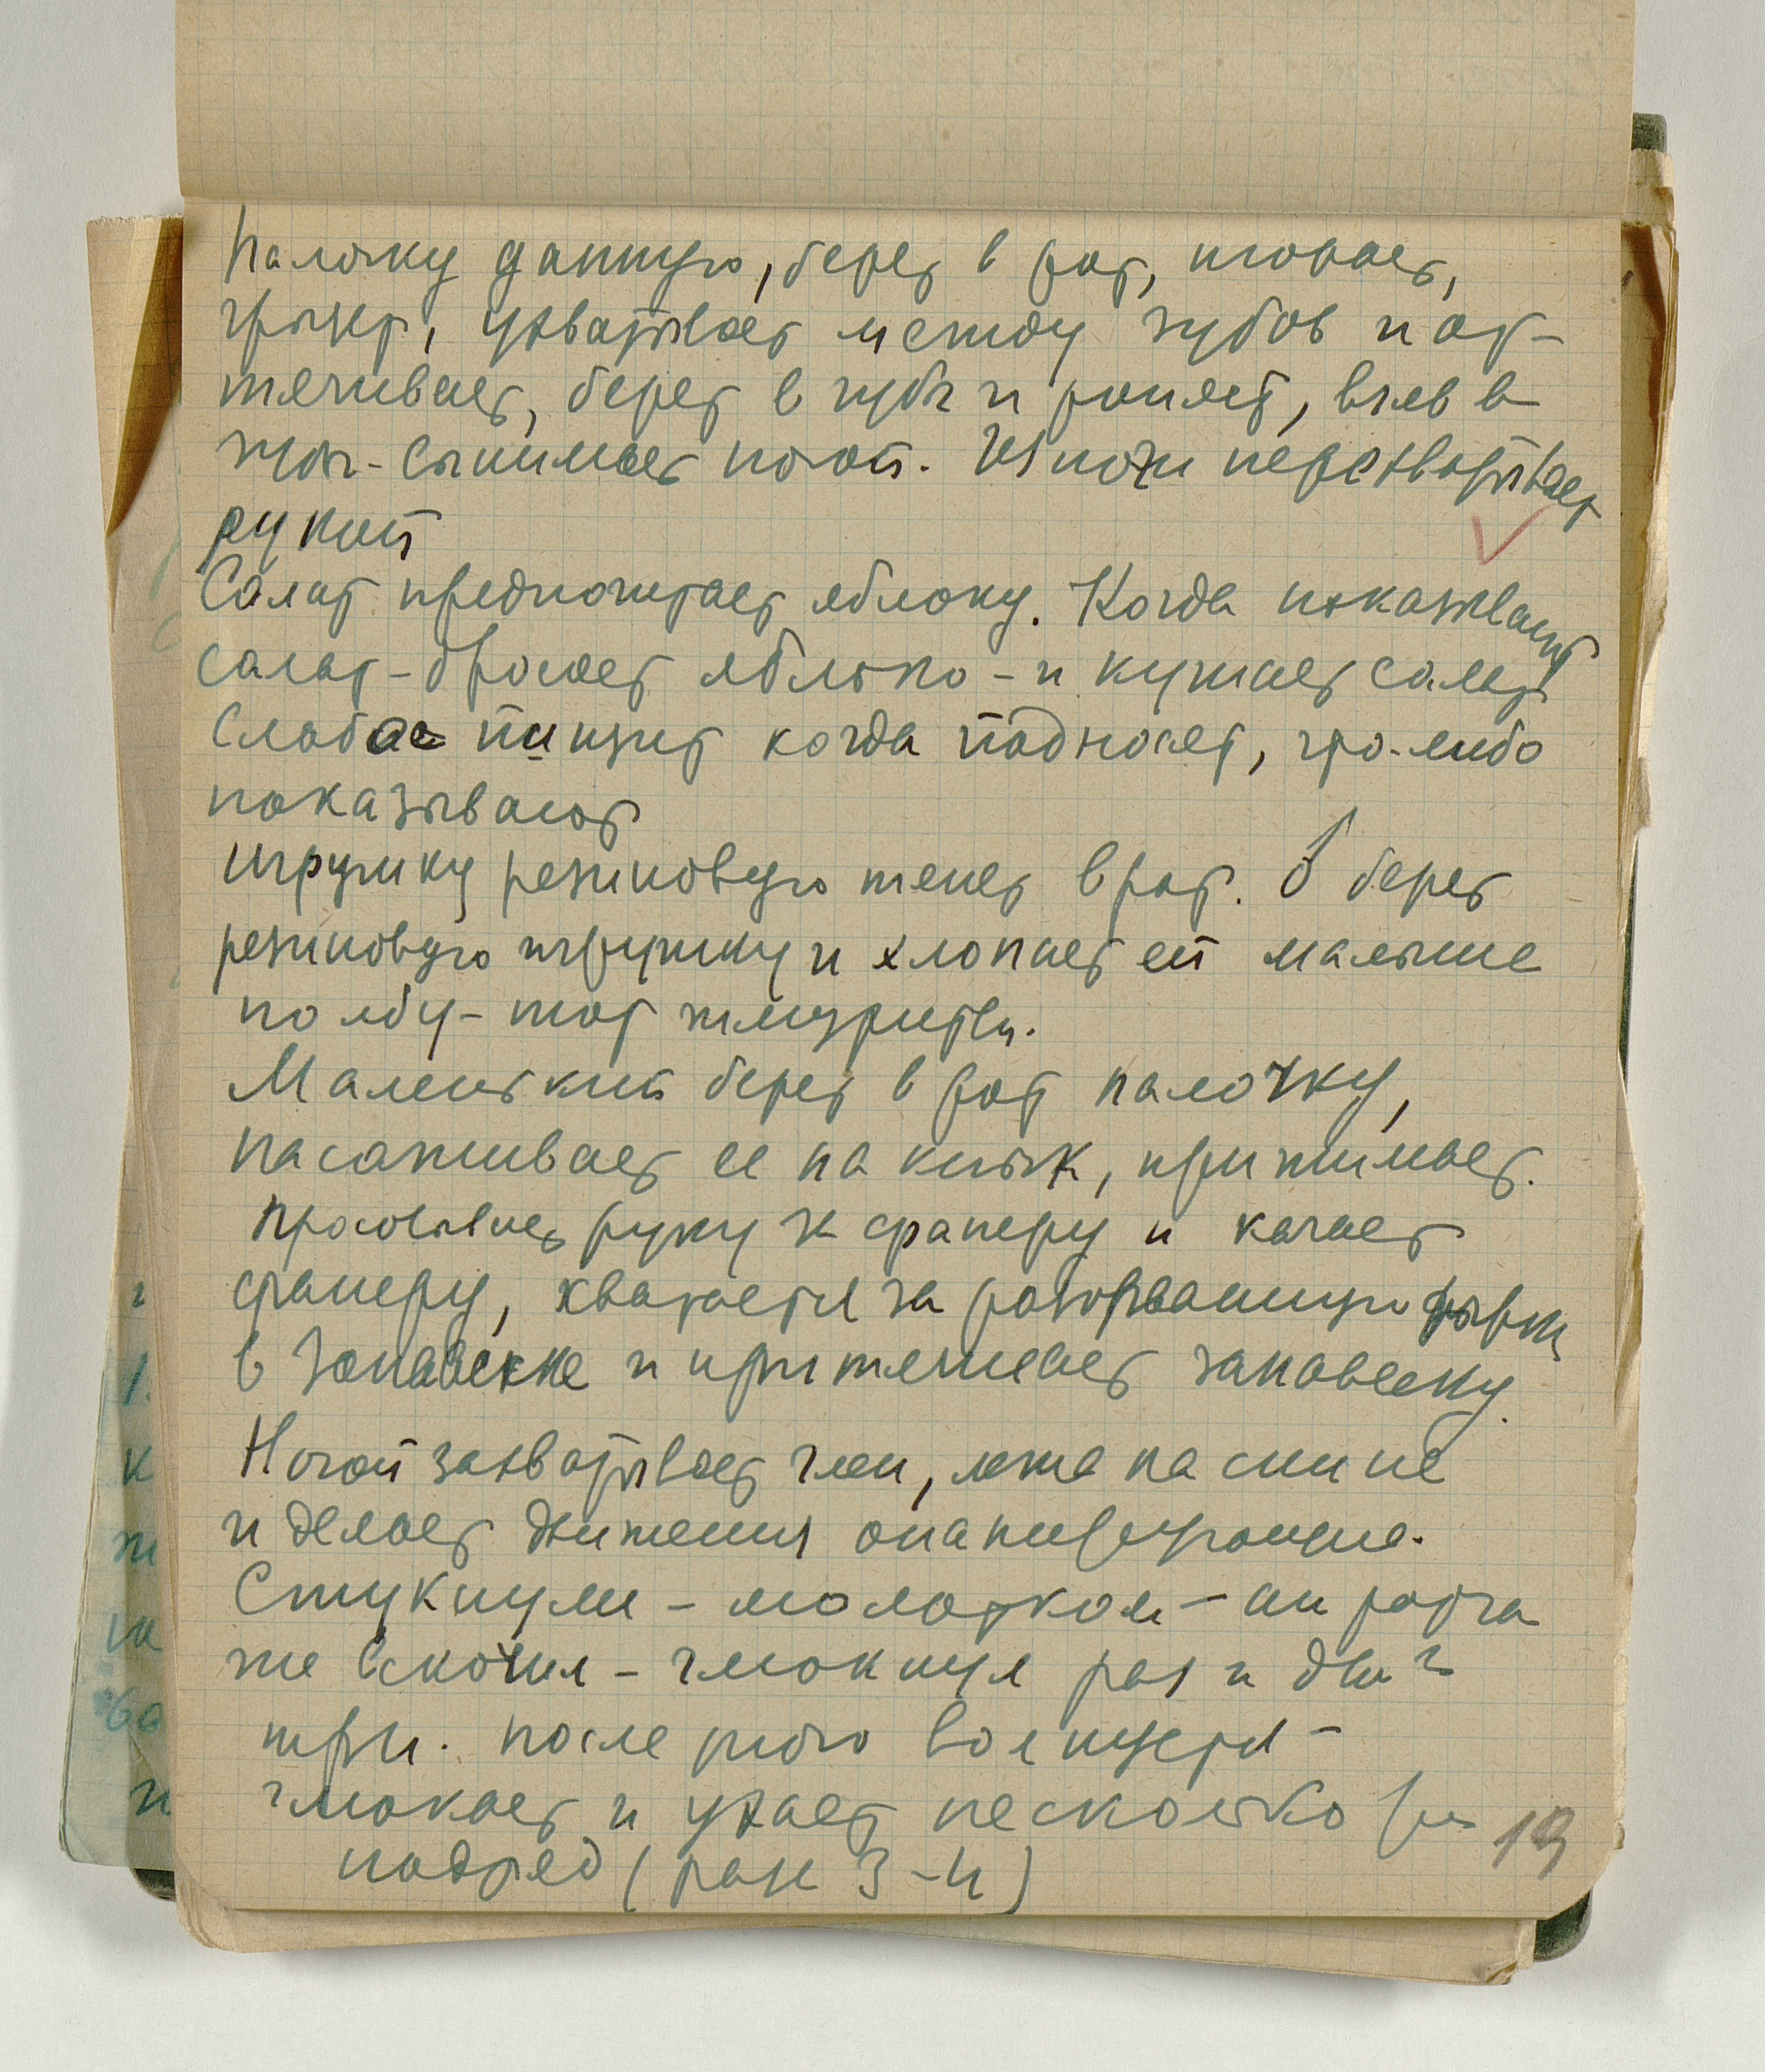 Палочку данную, берет в рот, ковыряет,
грызет, ухватывает между зубов и от-
тягивает, берет в зубы и роняет, взяв в
зубы - снимает ногой. Из ноги перехватывает
рукой
Салат предпочитает яблоку. Когда показывают
салат - бросает яблоко - и кушает салат
Слабое пищит когда подносят, что-либо
показывают
Игрушку резиновую тянет в рот. берет
резиновую игрушку и хлопает ей малыше
по лбу - тот жмурится.
Маленький берет в рот палочку,
насаживает ее на клык, прижимает.
Просовывает руку к фанеру и качает
фанеру, хватается за разорванную дырку
в занавеске и притягивает занавеску.
Ногой захватывает член, лежа на спине
и делает движения онанирующие.
Стукнули - молотком - он тотча
же вскочил - чмокнул раз и два и
три. после этого волнуется -
чмокает и ухает несколько раз
подряд (раза 3-4)
19